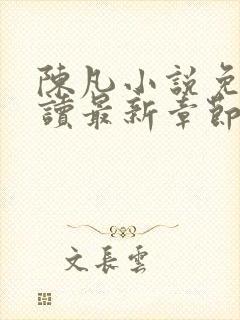 陳凡小說免
讀最新章節
文長雲